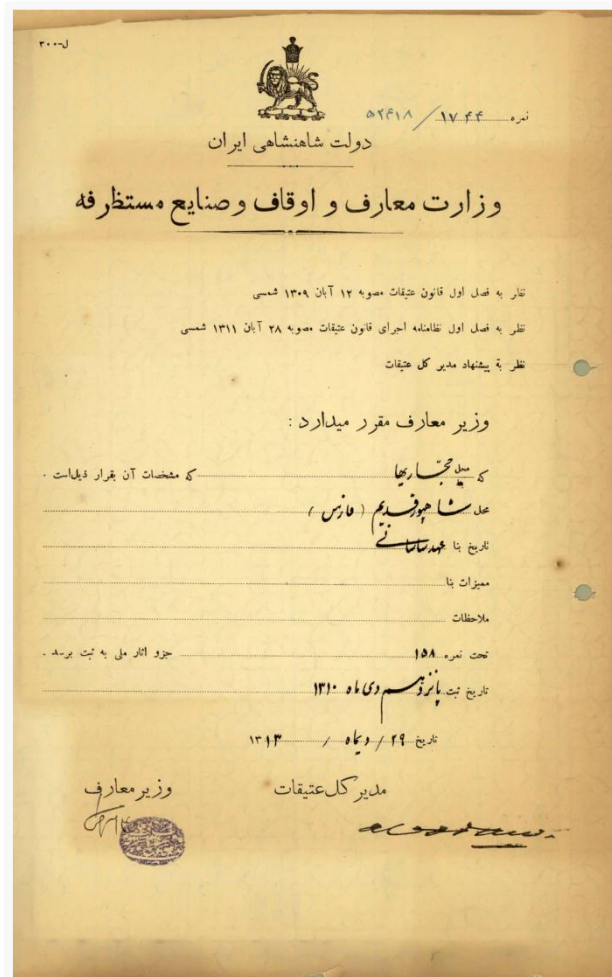 ل-۳۰۰
نمره ۱۷۴۴ / ۵۲۴۱۸
دولت شاهنشاهی ایران
وزارت معارف و اوقاف و صنایع مستظرفه
نظر به فصل اول قانون عتیقات مصوبه ۱۲ آبان ۱۳۰۹ شمسی
نظر به فصل اول نظامنامه اجرای قانون عتیقات مصوبه ۲۸ آبان ۱۳۱۱ شمسی
نظر به پیشنهاد مدیر کل عتیقات
وزیر معارف مقرر میدارد :
که محل حجاریها که مشخصات آن بقرار ذیل‌است .
محل شاهپور قدیم ( فارس )
تاریخ بنا عهد ساسانی
ممیزات بنا
ملاحظات
تحت نمره ۱۵۸ جزو اثار ملی به ثبت برسد .
تاریخ ثبت پانزدهم دی ماه ۱۳۱۰
تاریخ ۲۹ / دیماه / ۱۳۱۳
مدیر کل عتیقات وزیر معارف